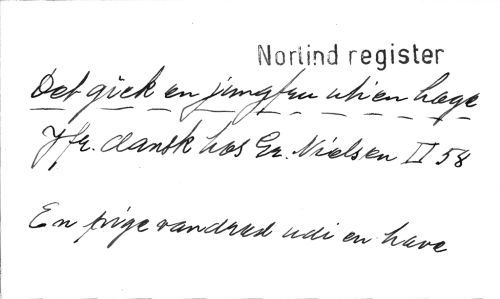 Norlind register
Det gick en jungfru uti en hage
Jfr. dansk hos Gr. Nielsen II 58
En pige vandred udi en have